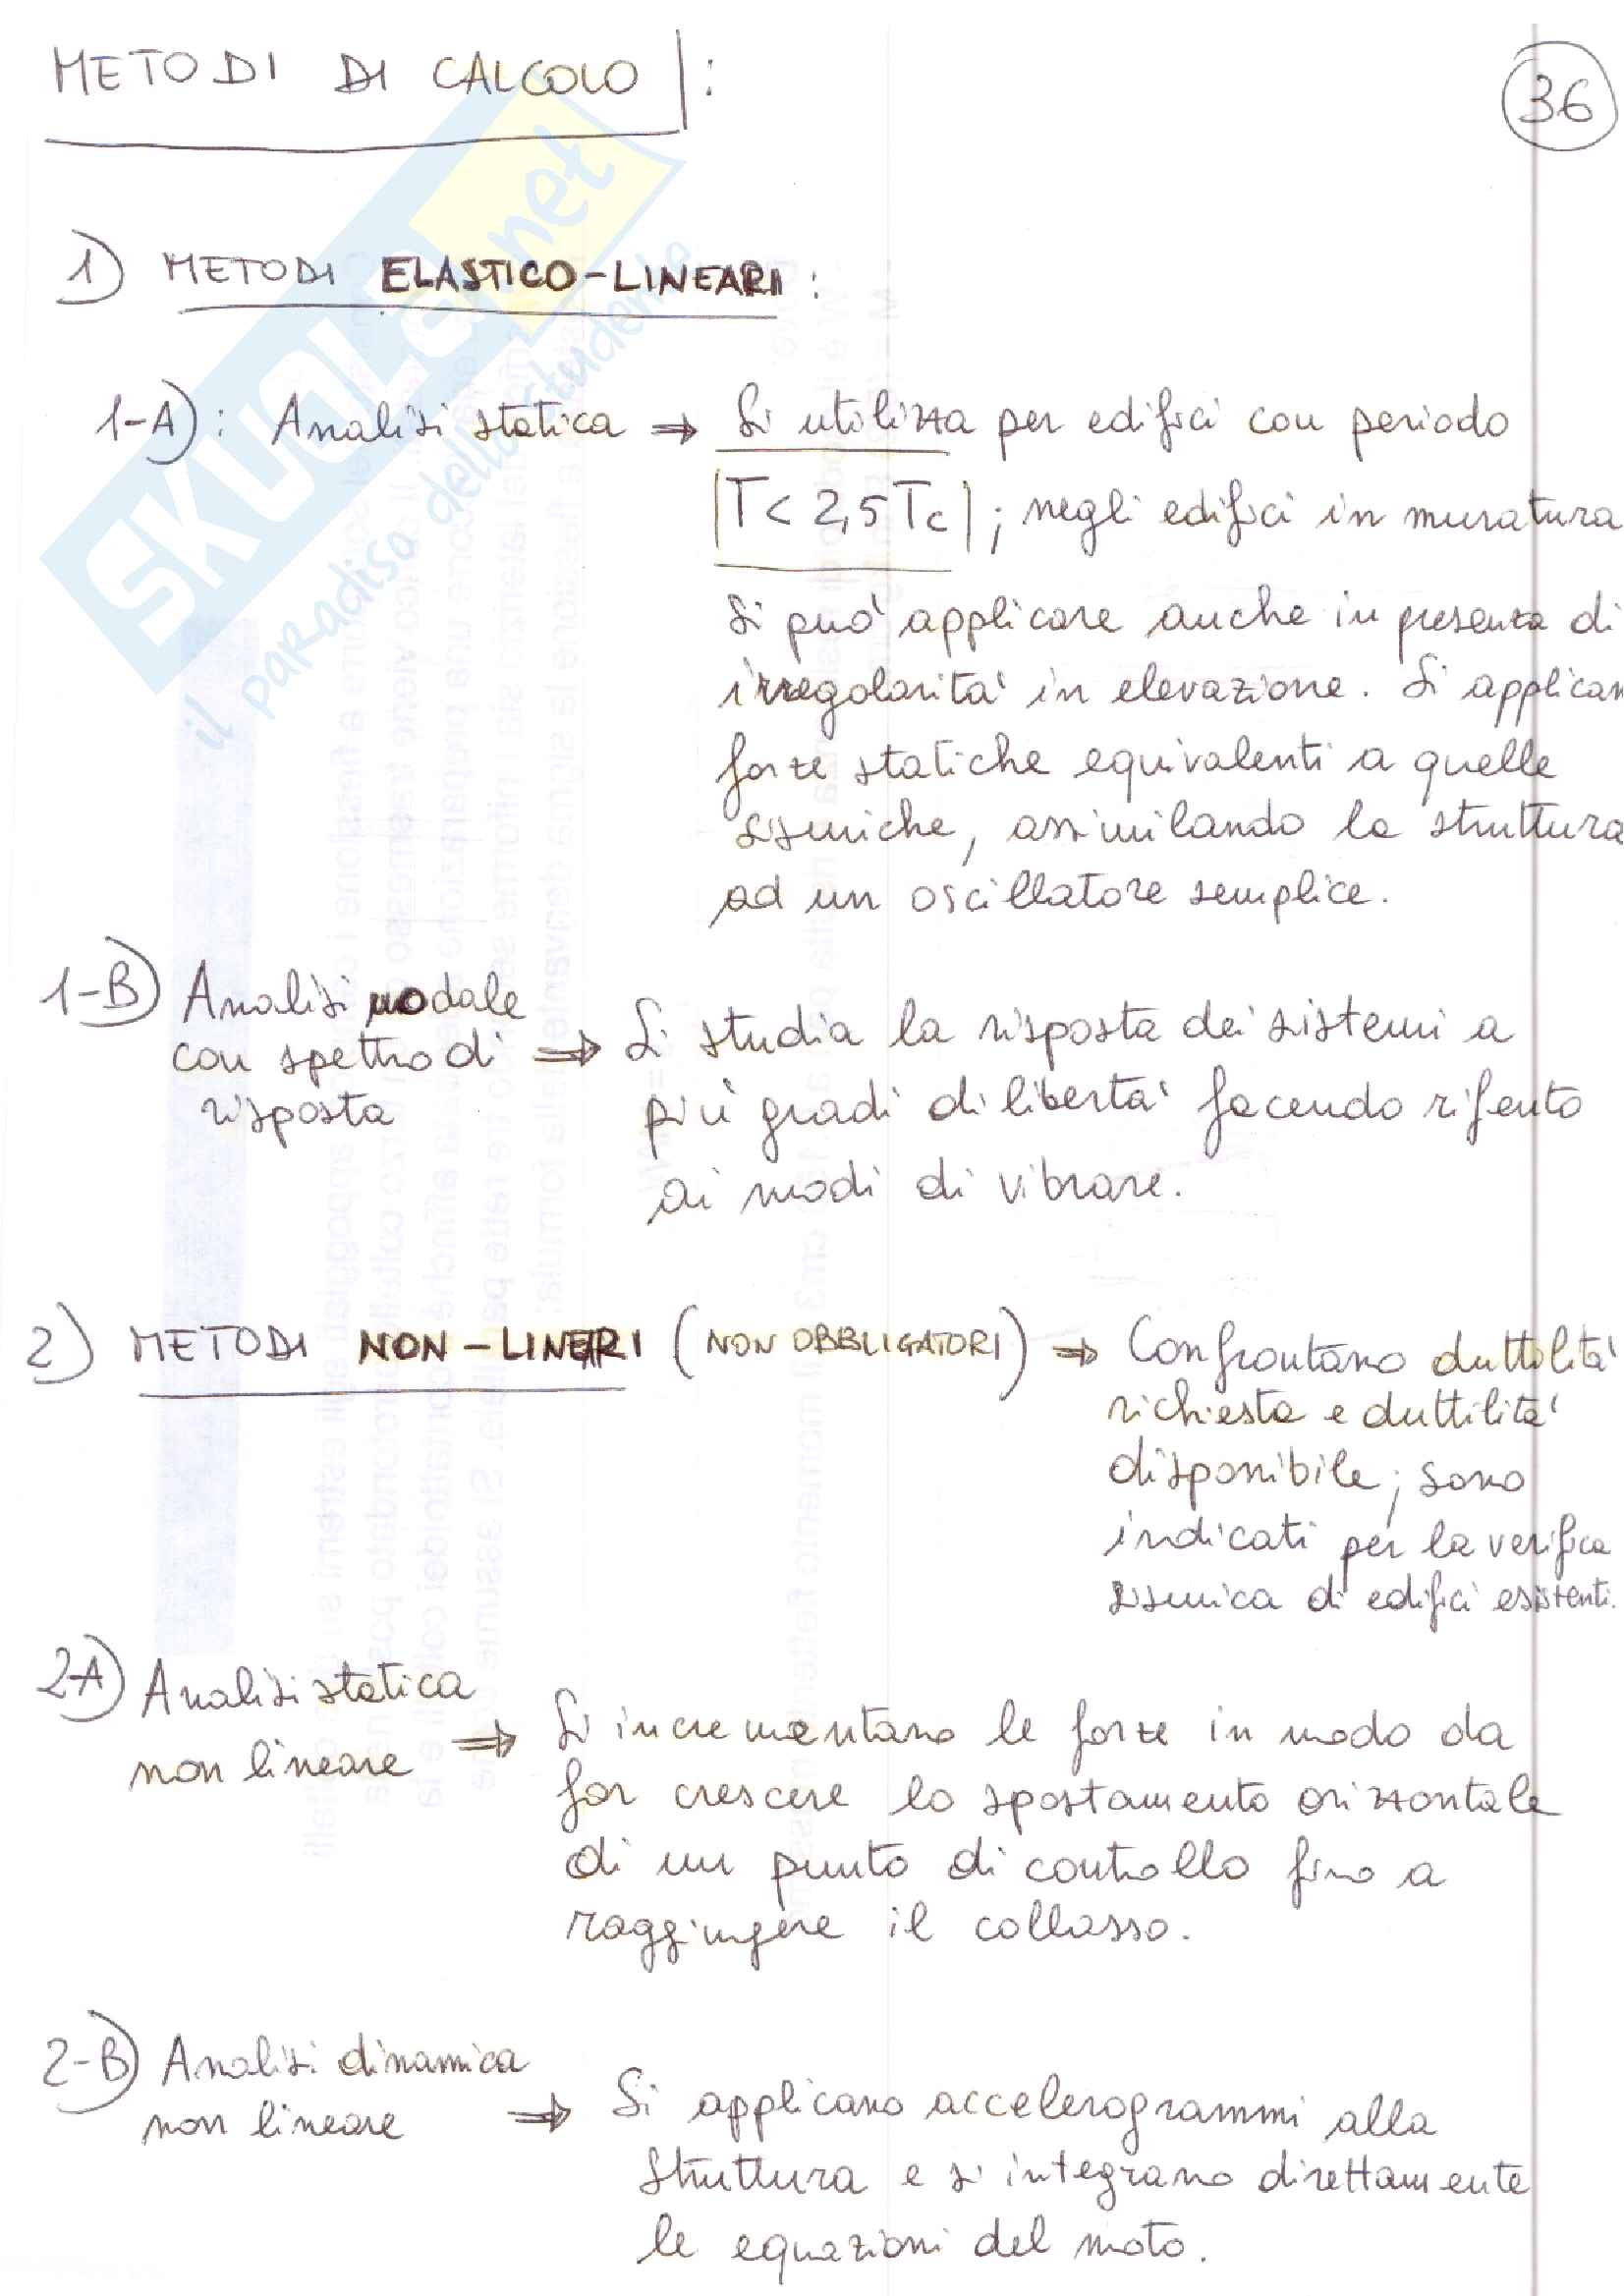 METODI DI CALCOLO :
36
1) METODI ELASTICO-LINEARI :
1-A) : Analisi statica ⇒ Si utilizza per edifici con periodo
T < 2,5 Tc ; negli edifici in muratura
si può applicare anche in presenza di
irregolarità in elevazione. Si applican
forze statiche equivalenti a quelle
sismiche, assimilando la struttura
ad un oscillatore semplice.
1-B) Analisi modale
con spettro di
risposta
⇒ Si studia la risposta dei sistemi a
più gradi di libertà facendo rifento
ai modi di vibrare.
2) METODI NON-LINERI (NON OBBLIGATORI) ⇒ Confrontano duttilità
richiesta e duttilità
disponibile; sono
indicati per la verifica
sismica di edifici esistenti.
2-A) Analisi statica
non lineare
⇒ Si incrementano le forze in modo da
far crescere lo spostamento orizzontale
di un punto di controllo fino a
raggiungere il collasso.
2-B) Analisi dinamica
non lineare
⇒ Si applicano accelerogrammi alla
struttura e si integrano direttamente
le equazioni del moto.
SKUOLA.net
il paradiso dello studente